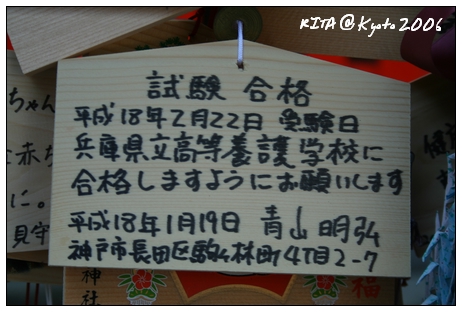 RITA @ Kyoto 2006
試験 合格
平成18年2月22日 受験日
兵庫県立高等養護学校に
合格しますようにお願いします
平成18年1月19日 青山明弘
神戸市長田区駒ヶ林町4丁目2-7
ちゃん
赤
に。
見守
神社
福